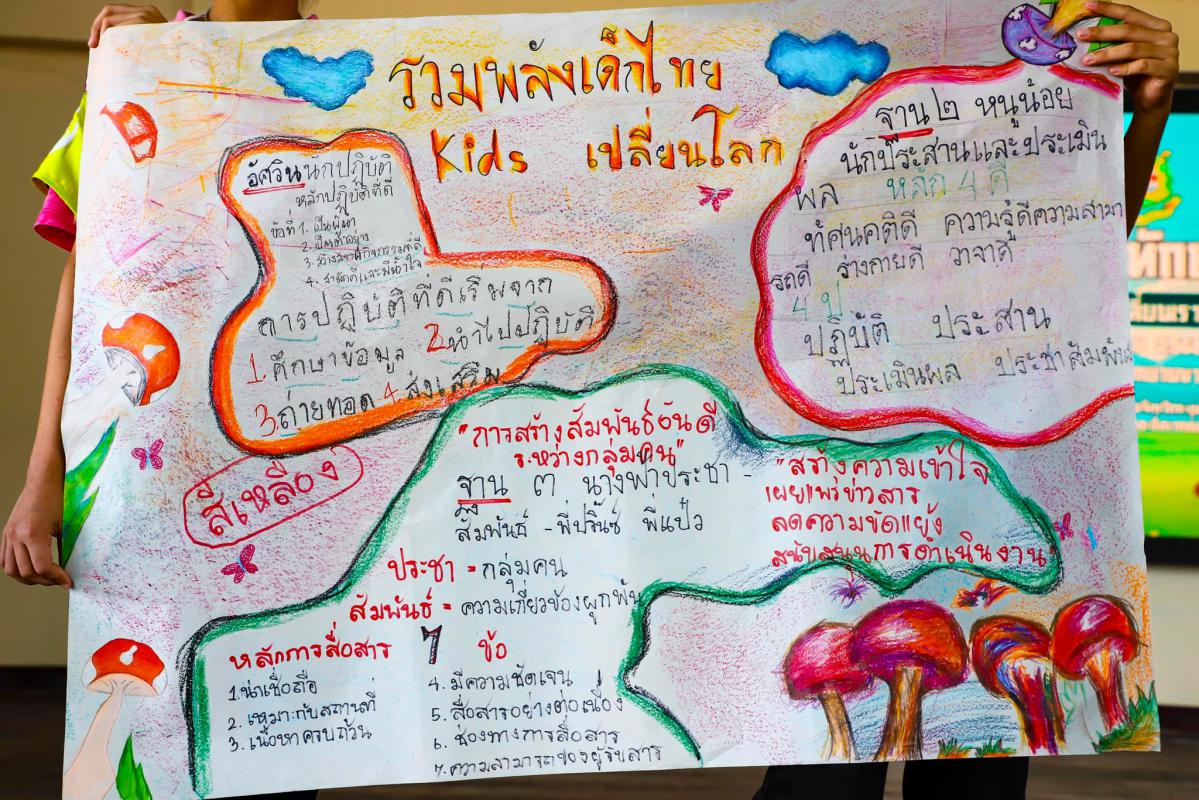 รวมพลังเด็กไทย
Kids เปลี่ยนโลก
อัศวินนักปฏิบัติ
หลักปฏิบัติที่ดี
ข้อที่ 1. เป็นผู้นำ
2. เป็นตัวอย่าง
3. สร้างสรรค์กิจกรรมที่ดี
4. สามัคคีและมีน้ำใจ
การปฏิบัติที่ดีเริ่มจาก
1. ศึกษาข้อมูล 2. นำไปปฏิบัติ
3. ถ่ายทอด 4. ส่งเสริม
ฐาน ๒ หนูน้อย
นักประสานและประเมิน
ผล หลัก 4 ดี
ทัศนคติดี ความรู้ดีความสามา
รถดี ร่างกายดี วาจาดี
4 ป
ปฏิบัติ ประสาน
ประเมินผล ประชาสัมพันธ์
สีเหลือง
"การสร้างสัมพันธ์อันดี
ระหว่างกลุ่มคน"
ฐาน ๓ นางฟ้าประชา -
สัมพันธ์ - พี่ปริ้นซ์ พี่แป๋ว
ประชา = กลุ่มคน
สัมพันธ์ = ความเกี่ยวข้องผูกพัน
"สร้างความเข้าใจ
เผยแพร่ข่าวสาร
ลดความขัดแย้ง
สนับสนุนการดำเนินงาน"
หลักการสื่อสาร 7 ข้อ
1. น่าเชื่อถือ
2. เหมาะกับสถานที่
3. เนื้อหาครบถ้วน
4. มีความชัดเจน
5. สื่อสารอย่างต่อเนื่อง
6. ช่องทางการสื่อสาร
7. ความสามารถของผู้รับสาร